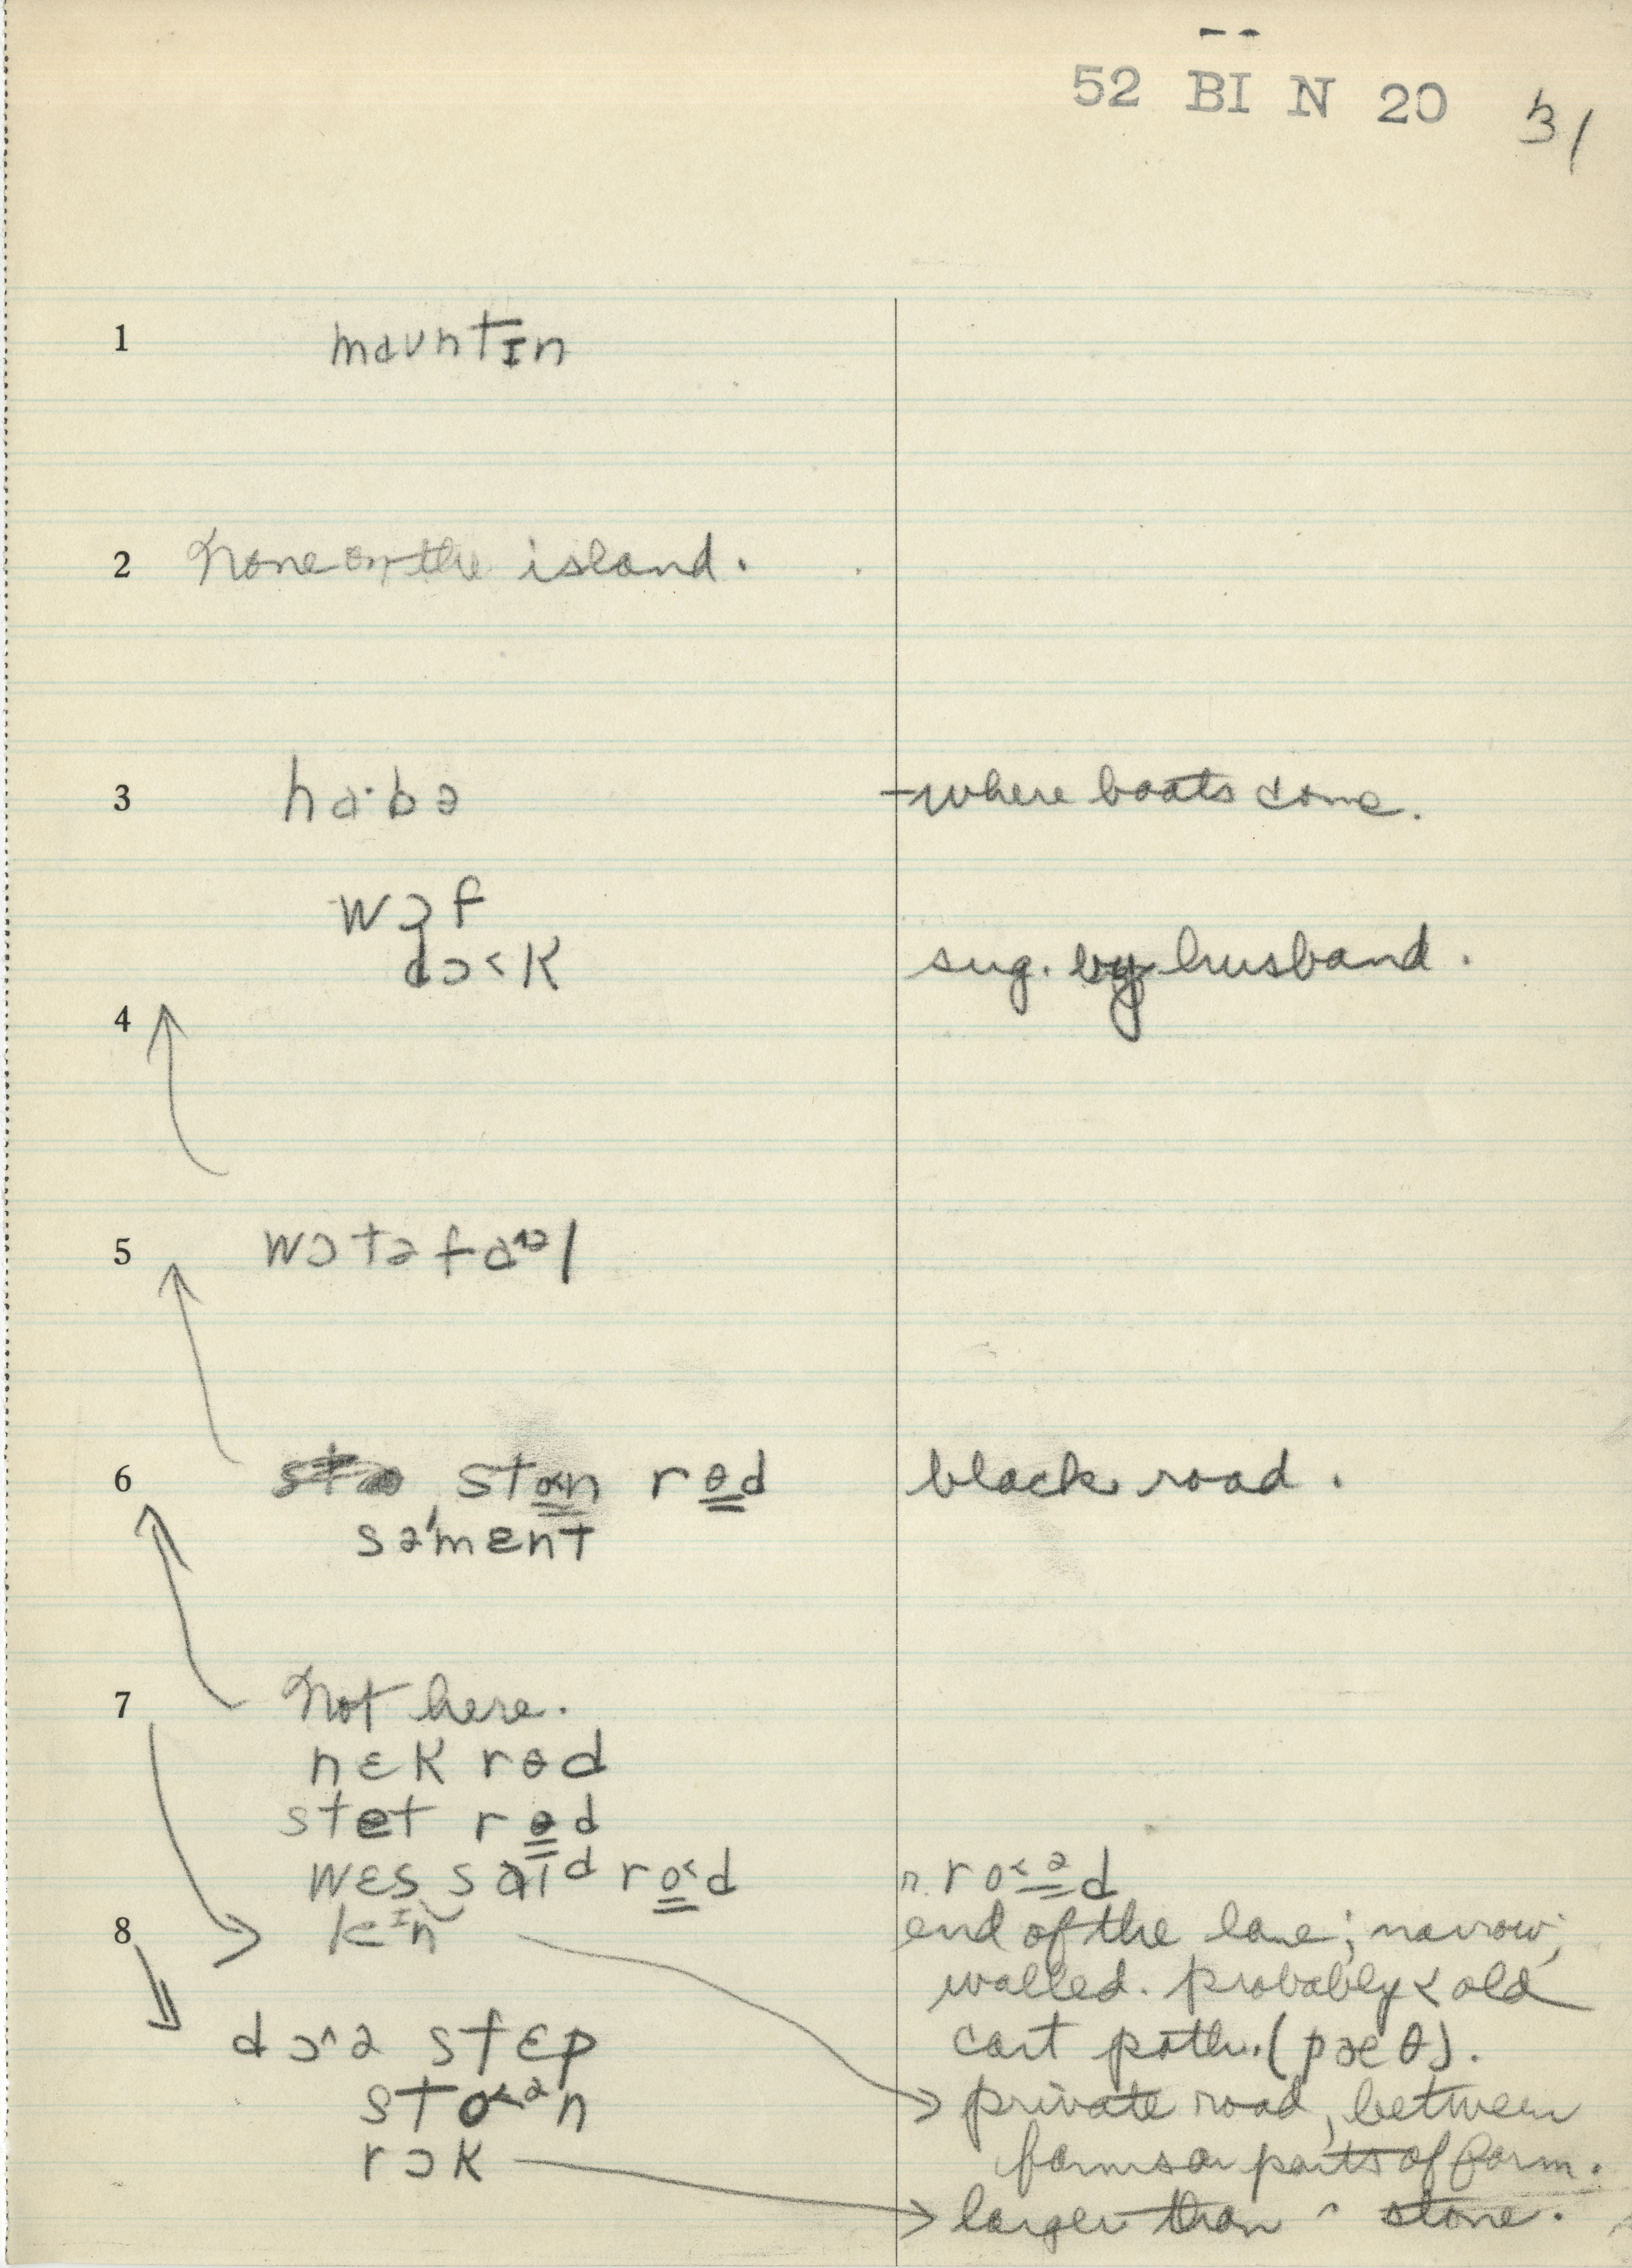 52 BI N 20 31
1 mauntɪn
2 None on the island.
3 ha·bə – where boats come.
wɔf
dɔ˂k sug. by husband.
4
5 wɔtə fɑᶺᵊl
6 ston rɵd black road.
sə'mɛnt
7 Not here.
nɛk rɵd
stet rɵd
wɛs saɪd ro˂d n. ro˂ᵊd
8 end of the lane; narrow;
walled. probably < old
dɔ^ə stɛp cart path. (pæθ).
sto˂ᵊn private road, between
rɔk farms or parts of farm.
larger than ^ stone.